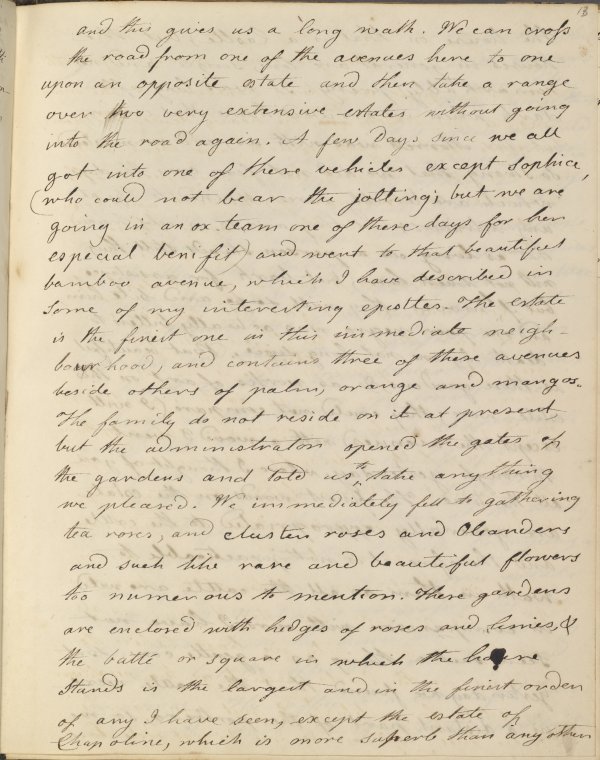 13
and this gives us a long walk. We can cross
the road from one of the avenues here to one
upon an opposite estate and then take a range
over two very extensive estates without going
into the road again. A few Days since we all
got into one of these vehicles except Sophia,
(who could not bear the jolting; but we are
going in an ox team one of these days for her
especial benifit) and went to that beautiful
bamboo avenue, which I have described in
some of my interesting epistles. The estate
is the finest one in this immediate neigh-
bourhood, and contains three of these avenues
beside others of palm, orange and mangos.
The family do not reside on it at present,
but the administrator opened the gates of
the gardens and told us to take anything
we pleased. We immediately fell to gathering
tea roses, and cluster roses and Oleanders
and such like rare and beautiful flowers
too numerous to mention. These gardens
are enclosed with hedges of roses and limes, &
the batté or square in which the house
stands is the largest and in the finest order
of any I have seen, except the estate of
Chapoline, which is more superb than any other